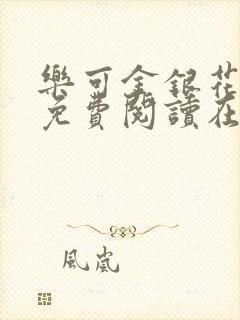 樂可金銀花
免費閱讀在
風嵐